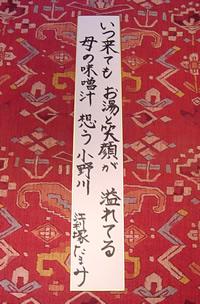 いつ来ても お湯と笑顔が 溢れてる
母の味噌汁 想う 小野川